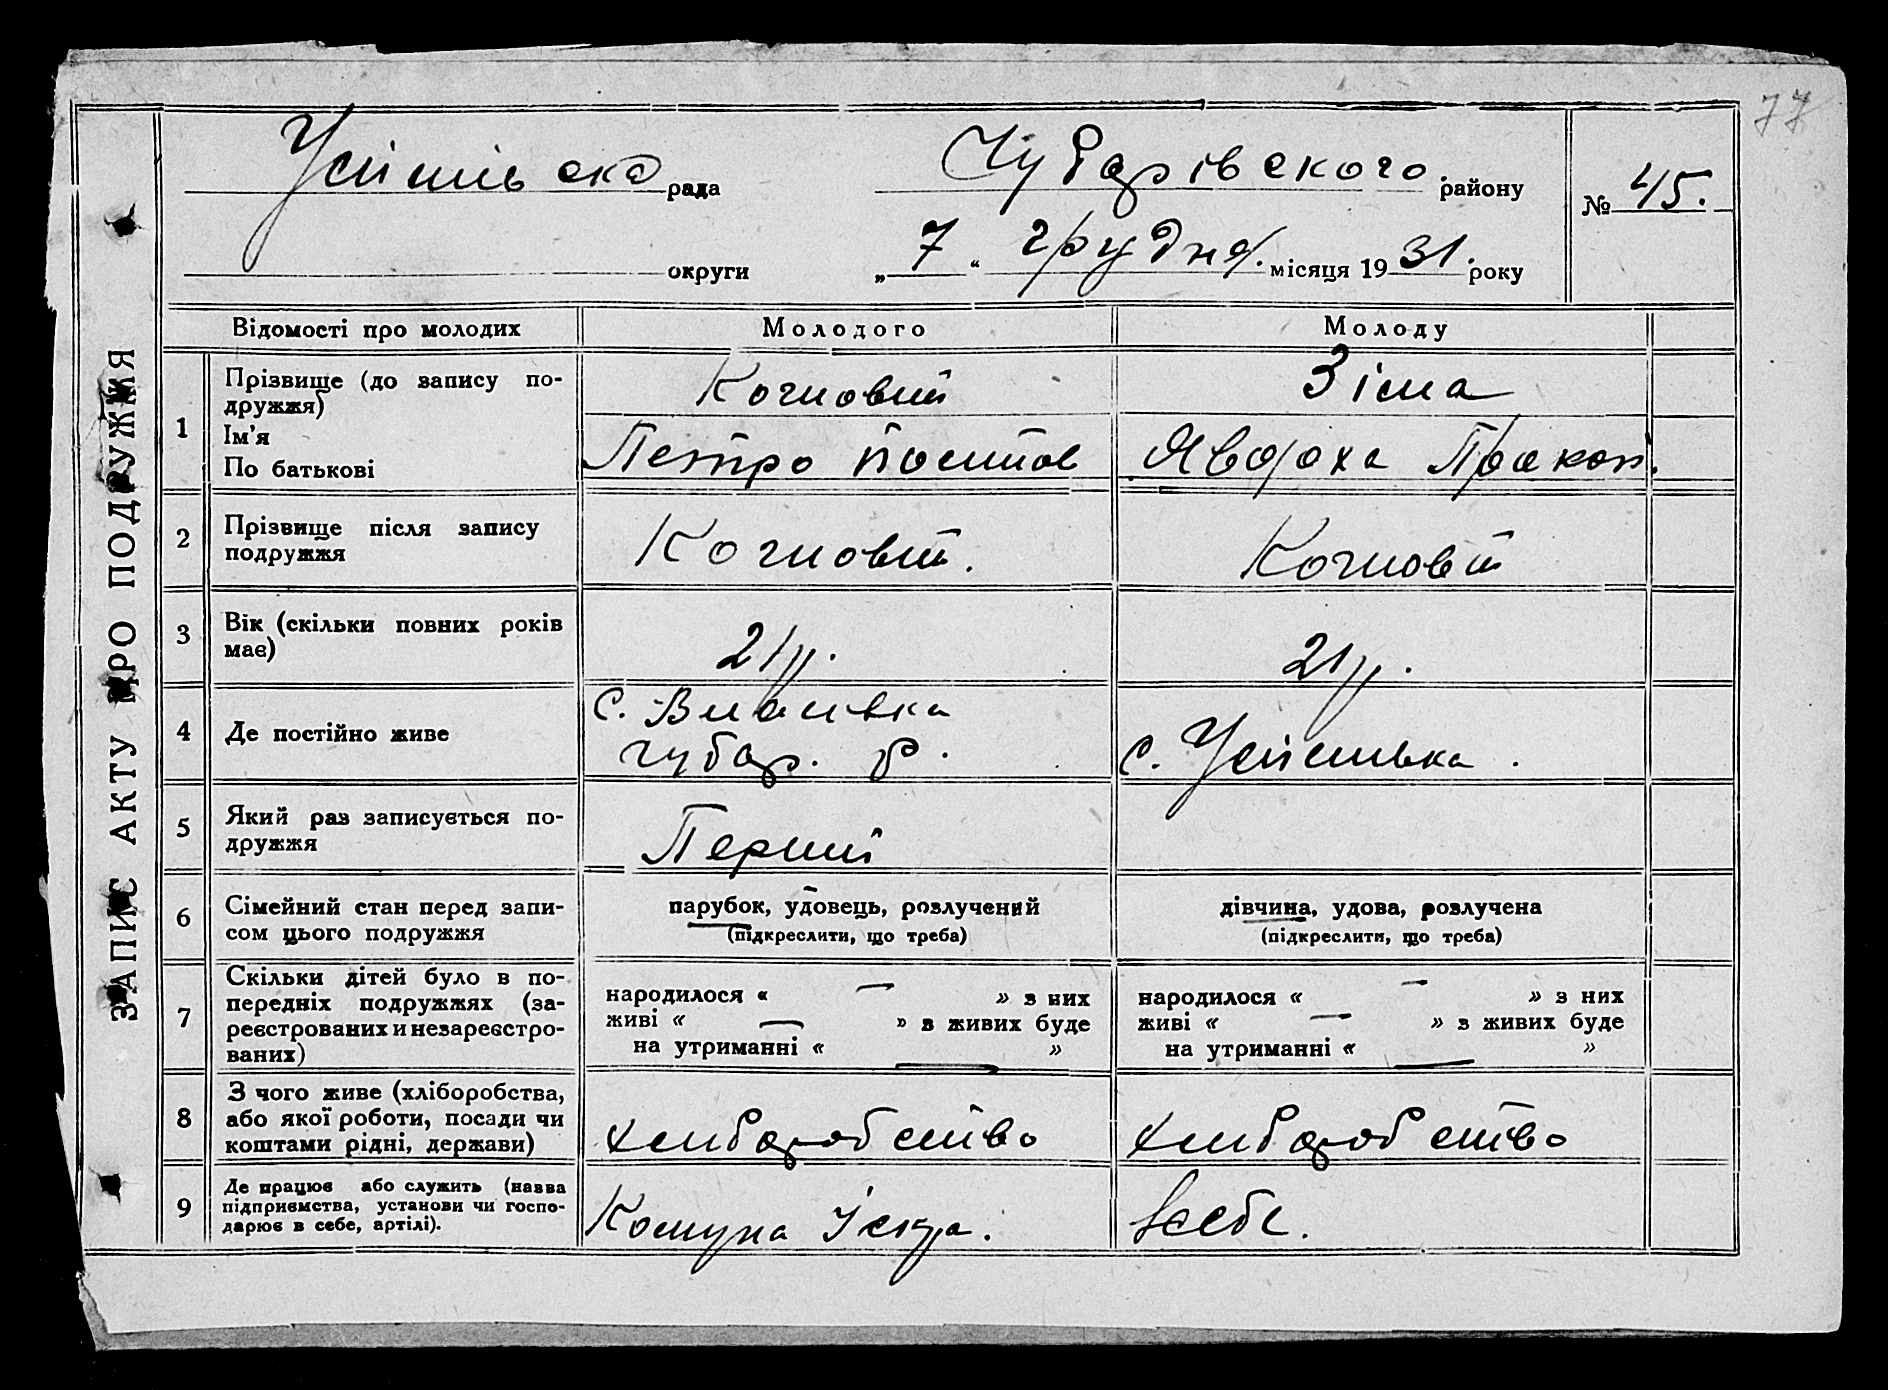 77
Успіпівська рада
Чубарівського району
№ 45.
округи
„7“ грудня. місяця 1931. року
ЗАПИС АКТУ ПРО ПОДРУЖЖЯ
Відомості про молодих
Молодого
Молоду
1
Прізвище (до запису по-
дружжя)
Ім'я
По батькові
Зіма
Петро
Явдоха Прокоп.
2
Прізвище після запису
подружжя
3
Вік (скільки повних років
має)
21 р.
21 р.
4
Де постійно живе
с.
чубар. р.
с.
5
Який раз записується по-
дружжя
Перший
6
Сімейний стан перед запи-
сом цього подружжя
парубок, удовець, розлучений
(підкреслити, що треба)
дівчина, удова, розлучена
(підкреслити, що треба)
7
Скільки дітей було в по-
передніх подружжях (за-
реєстрованих и незареєстро-
ваних)
народилося « — » з них
живі « — » з живих буде
на утриманні « — »
народилося « — » з них
живі « — » з живих буде
на утриманні « — »
8
З чого живе (хліборобства,
або якої роботи, посади чи
коштами рідні, держави)
хлиборобство
хлиборобство
9
Де працює або служить (назва
підприємства, установи чи госпо-
дарює в себе, артілі).
Комуна Іскра.
всебе.